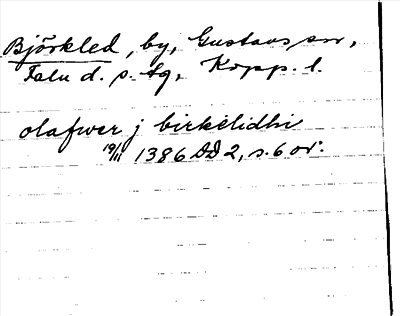 Björkled, by, Gustavs sn,
Falu d. s. tg, Kopp. l.
olafwer j birkelidhi
19/11 1386 DD 2, s. 6 or.